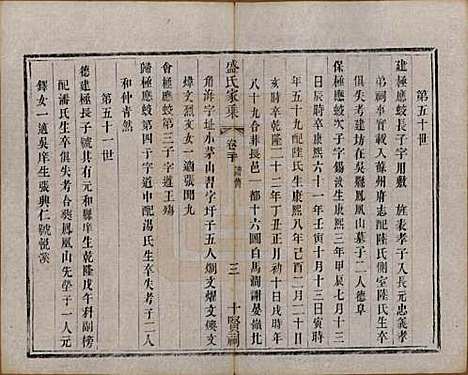 第五十世
建極應蛟長子字用敷 旌表孝子入長元忠義孝
弟祠奉實載入蘇州府志配陸氏側室陸氏生卒
俱失考葬吳山鳳凰山墓子二人德阜
保極應蛟次子字錫浚生康熙三年甲辰七月十三
日辰時卒康熙六十一年壬寅十月十三日寅時
年五十九配陸氏生康熙八年己酉二月二十日
亥時卒乾隆二十二年丁丑正月初十日戌時年
八十九合葬長邑一都十六圖白馬澗謝晏嶺北
盛氏家乘 卷三 三 十賢祠
角海字址小茅山習字圩子五人炯文燿文燮文
燦文 女一適張聞九
會極應蛟第三子字道王殤
歸極應蛟第四子字道中配湯氏生卒失考子二人
和仲 熬
第五十一世
德建極長子號具有元和縣庠生乾隆戊午科副榜
配潘氏生卒俱失考合葬鳳凰山先塋子一人元
鐸女一適吳庠生張興仁號說溪